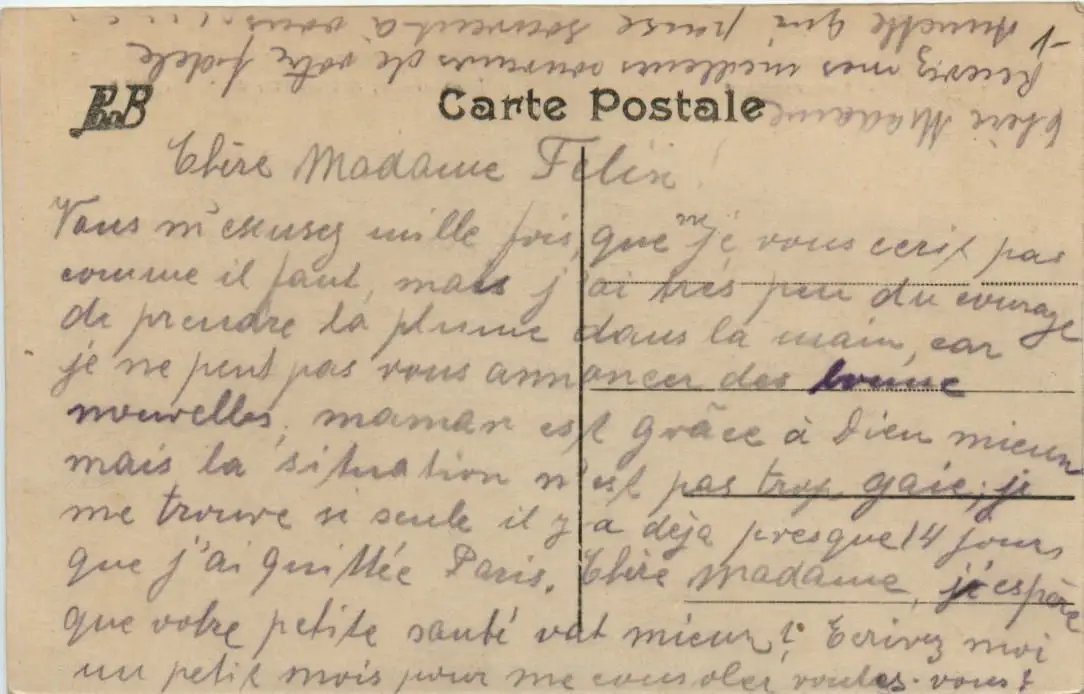 EB
Carte Postale
Chère Madame Felix!
Vous m'escusez mille fois, que ne je vous ecrit pas
comme il faut, mais j'ai très peu du courage
de prendre la plume dans la main, car
je ne peut pas vous annoncer des bonne
nouvelles, maman est grâce à Dieu mieux
mais la situation n'est pas trop gaie, je
me trouve si seule il y a déja presque 14 jours
que j'ai quittée Paris. Chère Madame, j'espère
que votre petite santé vat mieux? Ecrivez moi
un petit mois pour me consoler voulez-vous?
Chère Madame
Recevez mes meilleurs souvenirs de votre fidele
qui pense souvent à vous